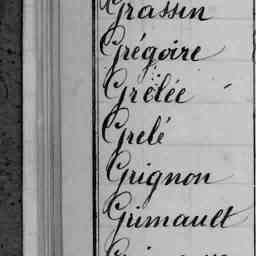 Grassin
Grégoire
Grêlée
Grelé
Grignon
Grimault